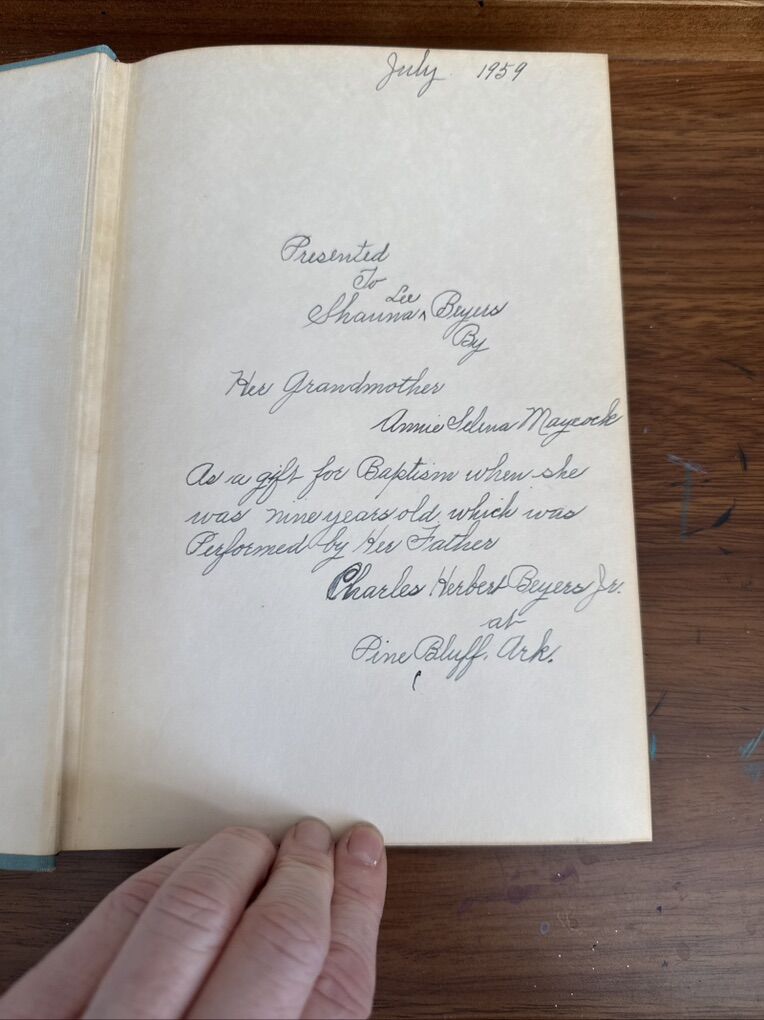 July 1959
Presented
To
Shauna ^ Lee Beyers
By
Her Grandmother
Annie Selena Maycock
As a gift for Baptism when she
was nine years old which was
Performed by Her Father
Charles Herbert Beyers Jr.
at
Pine Bluff, Ark.